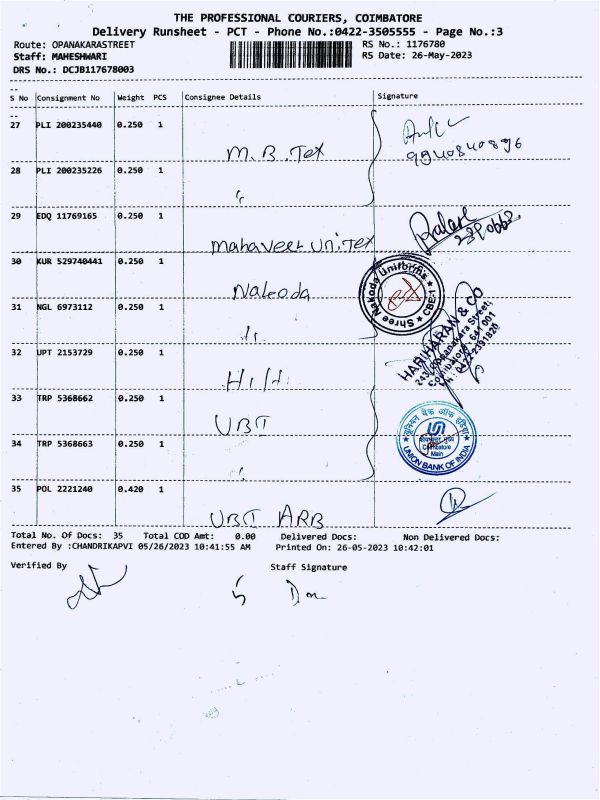 THE PROFESSIONAL COURIERS, COIMBATORE
Delivery Runsheet - PCT - Phone No.:0422-3505555 - Page No.:3
Route: OPANAKARASTREET
RS No.: 1176780
Staff: MAHESHWARI
RS Date: 26-May-2023
DRS No.: DCJB117678003
S No Consignment No Weight PCS Consignee Details Signature
27 PLI 200235440 0.250 1 M.B. Tex
9940840896
28 PLI 200235226 0.250 1 "
29 EDQ 11769165 0.250 1 Mahaveer Uni Tex
30 KUR 529740441 0.250 1 Nakoda
Shree Nakoda Uniforms CBE-1
31 NGL 6973112 0.250 1 "
HARIHARAN & CO
243, Oppanakara Street,
Coimbatore - 641 001
Ph : 0422-2391820
32 UPT 2153729 0.250 1
33 TRP 5368662 0.250 1 UBI
यूनियन बैंक ऑफ इंडिया
Coimbatore
Main
UNION BANK OF INDIA
34 TRP 5368663 0.250 1 "
35 POL 2221240 0.420 1 UBI ARB
Total No. Of Docs: 35 Total COD Amt: 0.00 Delivered Docs: Non Delivered Docs:
Entered By :CHANDRIKAPVI 05/26/2023 10:41:55 AM Printed On: 26-05-2023 10:42:01
Verified By Staff Signature